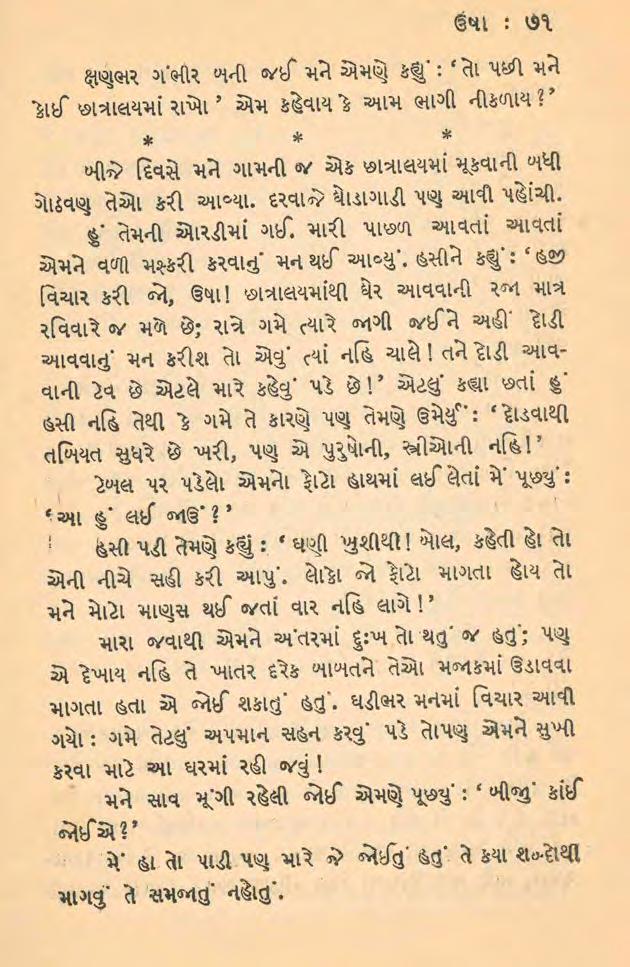 ઉષા : ૭૧
ક્ષણભર ગંભીર બની જઈ મને એમણે કહ્યું : ‘ તો પછી મને
કોઈ છાત્રાલયમાં રાખો ’ એમ કહેવાય કે આમ ભાગી નીકળાય ?’
* * *
બીજે દિવસે મને ગામની જ એક છાત્રાલયમાં મૂકવાની બધી
ગોઠવણ તેઓ કરી આવ્યા. દરવાજે ઘોડાગાડી પણ આવી પહોંચી.
હું તેમની ઓરડીમાં ગઈ. મારી પાછળ આવતાં આવતાં
એમને વળી મશ્કરી કરવાનું મન થઈ આવ્યું. હસીને કહ્યું : ‘ હજી
વિચાર કરી જો, ઉષા! છાત્રાલયમાંથી ઘેર આવવાની રજા માત્ર
રવિવારે જ મળે છે; રાત્રે ગમે ત્યારે જાગી જઈને અહીં દોડી
આવવાનું મન કરીશ તો એવું ત્યાં નહિ ચાલે! તને દોડી આવ-
વાની ટેવ છે એટલે મારે કહેવું પડે છે!’ એટલું કહ્યા છતાં હું
હસી નહિ તેથી કે ગમે તે કારણે પણ તેમણે ઉમેર્યું : ‘ દોડવાથી
તબિયત સુધરે છે ખરી, પણ એ પુરુષોની, સ્ત્રીઓની નહિ!’
ટેબલ પર પડેલો એમનો ફોટો હાથમાં લઈ લેતાં મેં પૂછ્યું :
‘ આ હું લઈ જાઉં ?’
હસી પડી તેમણે કહ્યું : ‘ ઘણી ખુશીથી! બોલ, કહેતી હો તો
એની નીચે સહી કરી આપું. લોકો જો ફોટો માગતા હોય તો
મને મોટો માણસ થઈ જતાં વાર નહિ લાગે!’
મારા જવાથી એમને અંતરમાં દુઃખ તો થતું જ હતું; પણ
એ દેખાય નહિ તે ખાતર દરેક બાબતને તેઓ મજાકમાં ઉડાવવા
માગતા હતા એ જોઈ શકાતું હતું. ઘડીભર મનમાં વિચાર આવી
ગયો : ગમે તેટલું અપમાન સહન કરવું પડે તોપણ એમને સુખી
કરવા માટે આ ઘરમાં રહી જવું!
મને સાવ મૂંગી રહેલી જોઈ એમણે પૂછ્યું : ‘ બીજું કાંઈ
જોઈએ ?’
મેં હા તો પાડી પણ મારે જે જોઈતું હતું તે કયા શબ્દોથી
માગવું તે સમજાતું નહોતું.